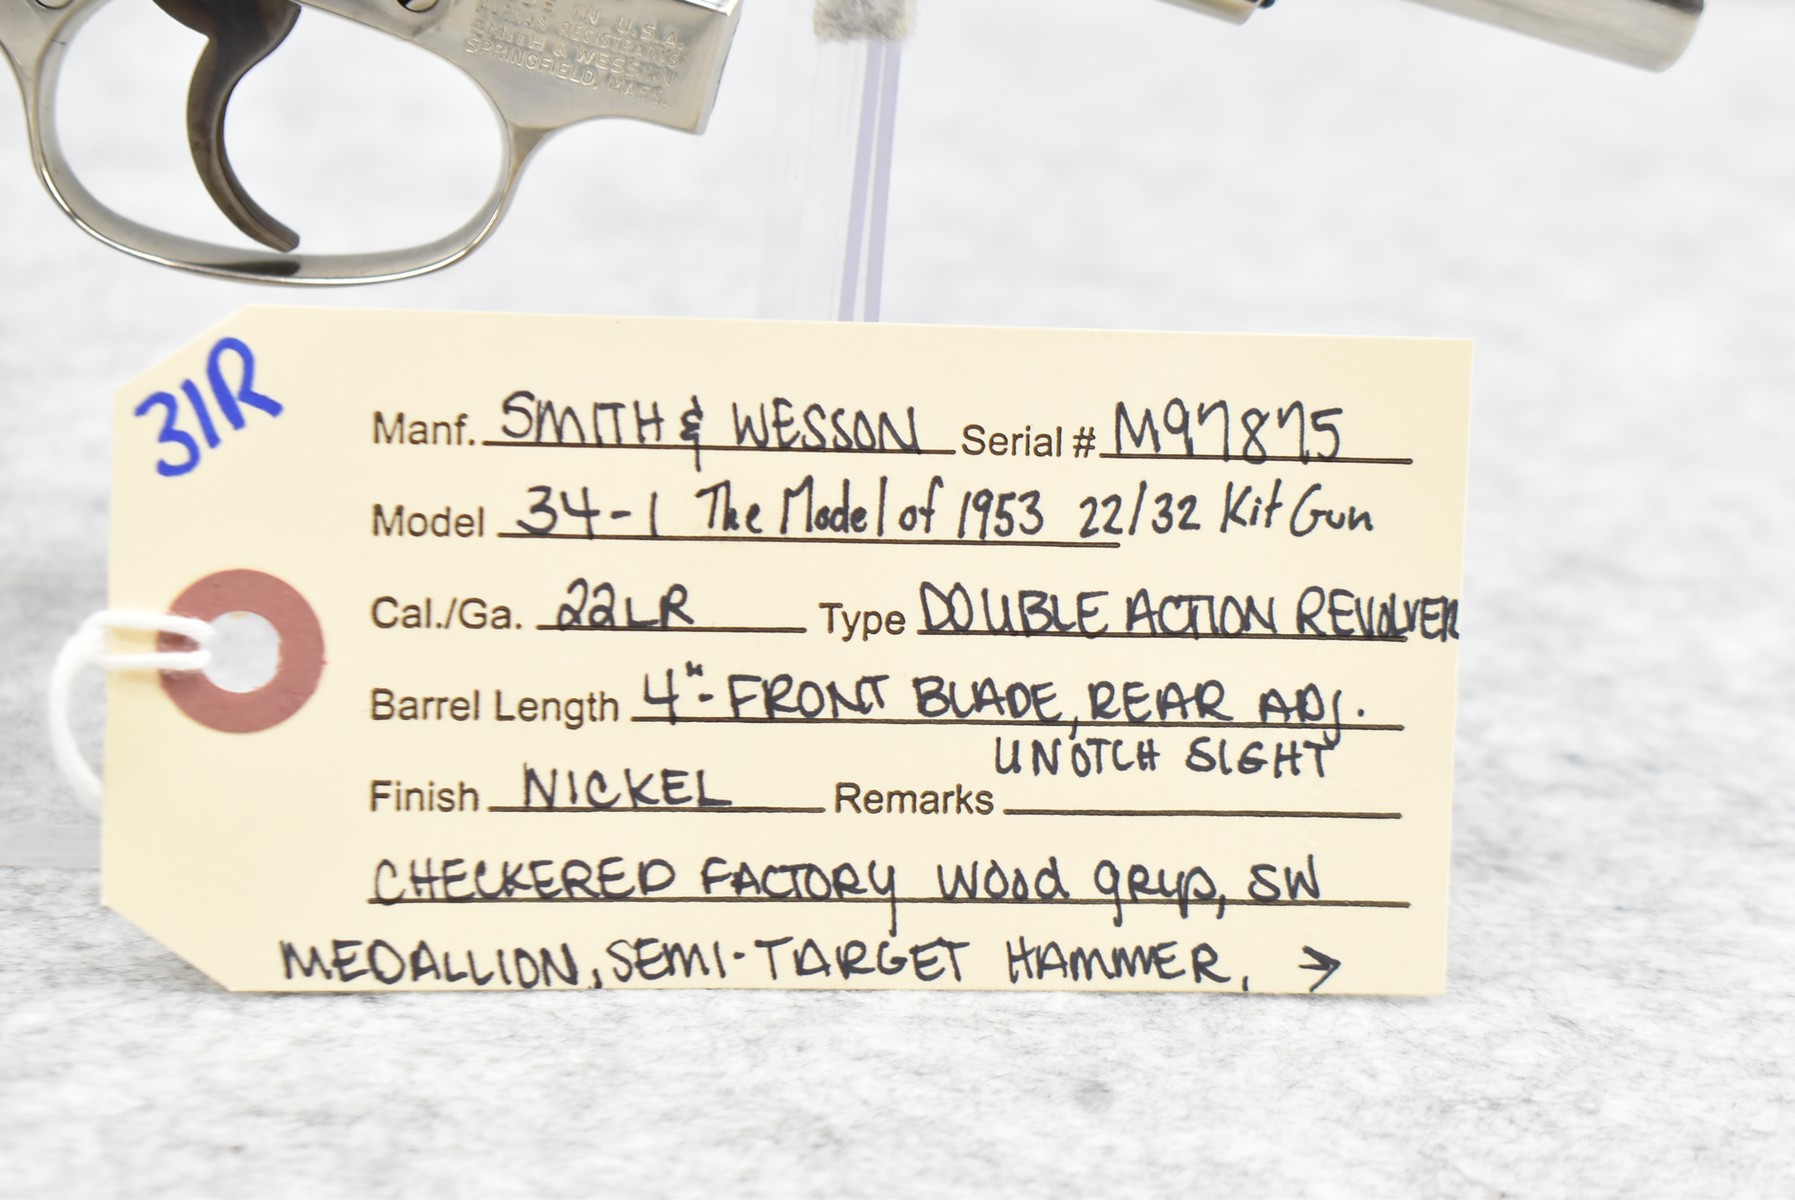 MADE IN U.S.A.
MARCAS REGISTRADAS
SMITH & WESSON
SPRINGFIELD, MASS.
31R
Manf. SMITH & WESSON Serial # M97875
Model 34-1 The Model of 1953 22/32 Kit Gun
Cal./Ga. 22LR Type DOUBLE ACTION REVOLVER
Barrel Length 4"- FRONT BLADE, REAR ADJ.
UNOTCH SIGHT
Finish NICKEL Remarks
CHECKERED FACTORY WOOD GRIP, SW
MEDALLION, SEMI-TARGET HAMMER, →